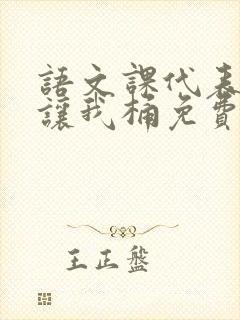 語文課代表
讓我桶免費
王正盤